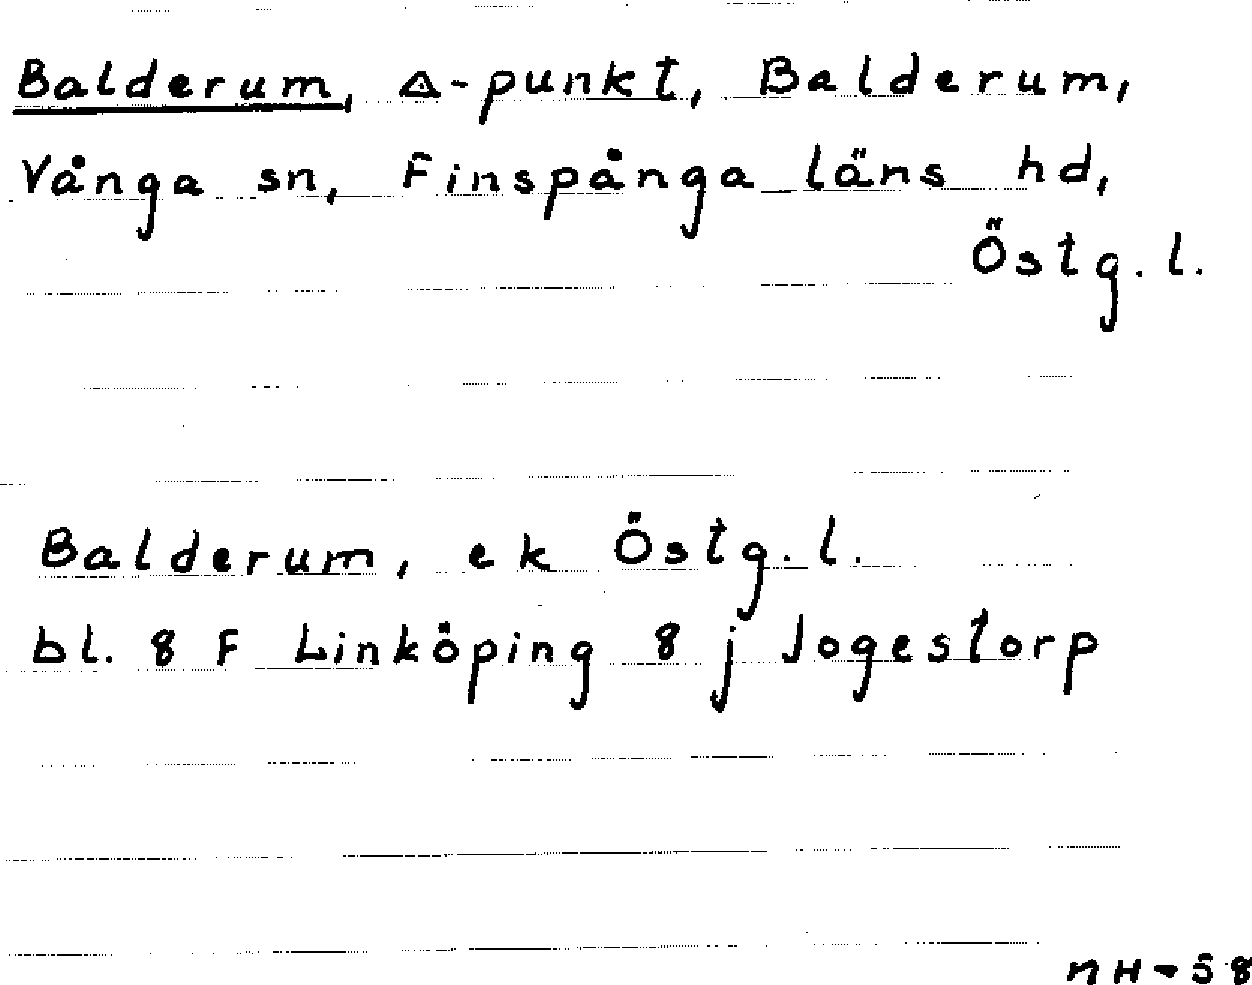 Balderum, Δ-punkt, Balderum,
Vånga sn, Finspånga läns hd,
Östg.l.
Balderum, ek Östg.l.
bl. 8 F Linköping 8 j Jogestorp
NH-58